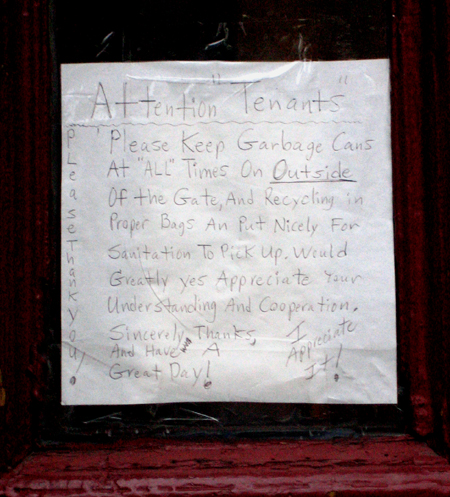 Attention "Tenants"
Please Keep Garbage Cans
At "ALL" Times On Outside
Of the Gate, And Recycling in
Proper Bags An Put Nicely For
Sanitation To Pick Up. Would
Greatly yes Appreciate Your
Understanding And Cooperation.
Sincerely, Thanks,
And Have A
Great Day!
I
Appreciate
It!
Please Thank you!